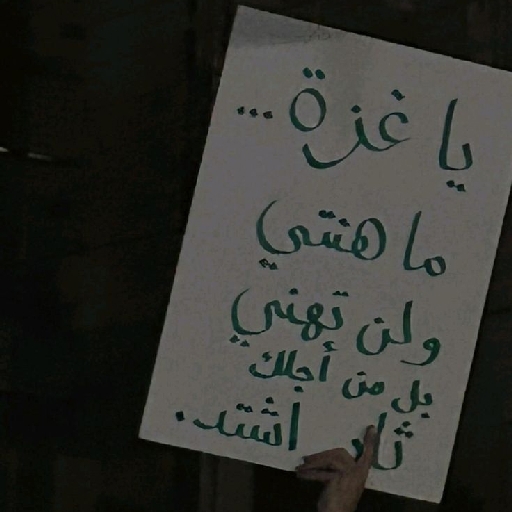 يا غزة...
ما هنتي
ولن تهني
بل من أجلك
ثار اشتد.